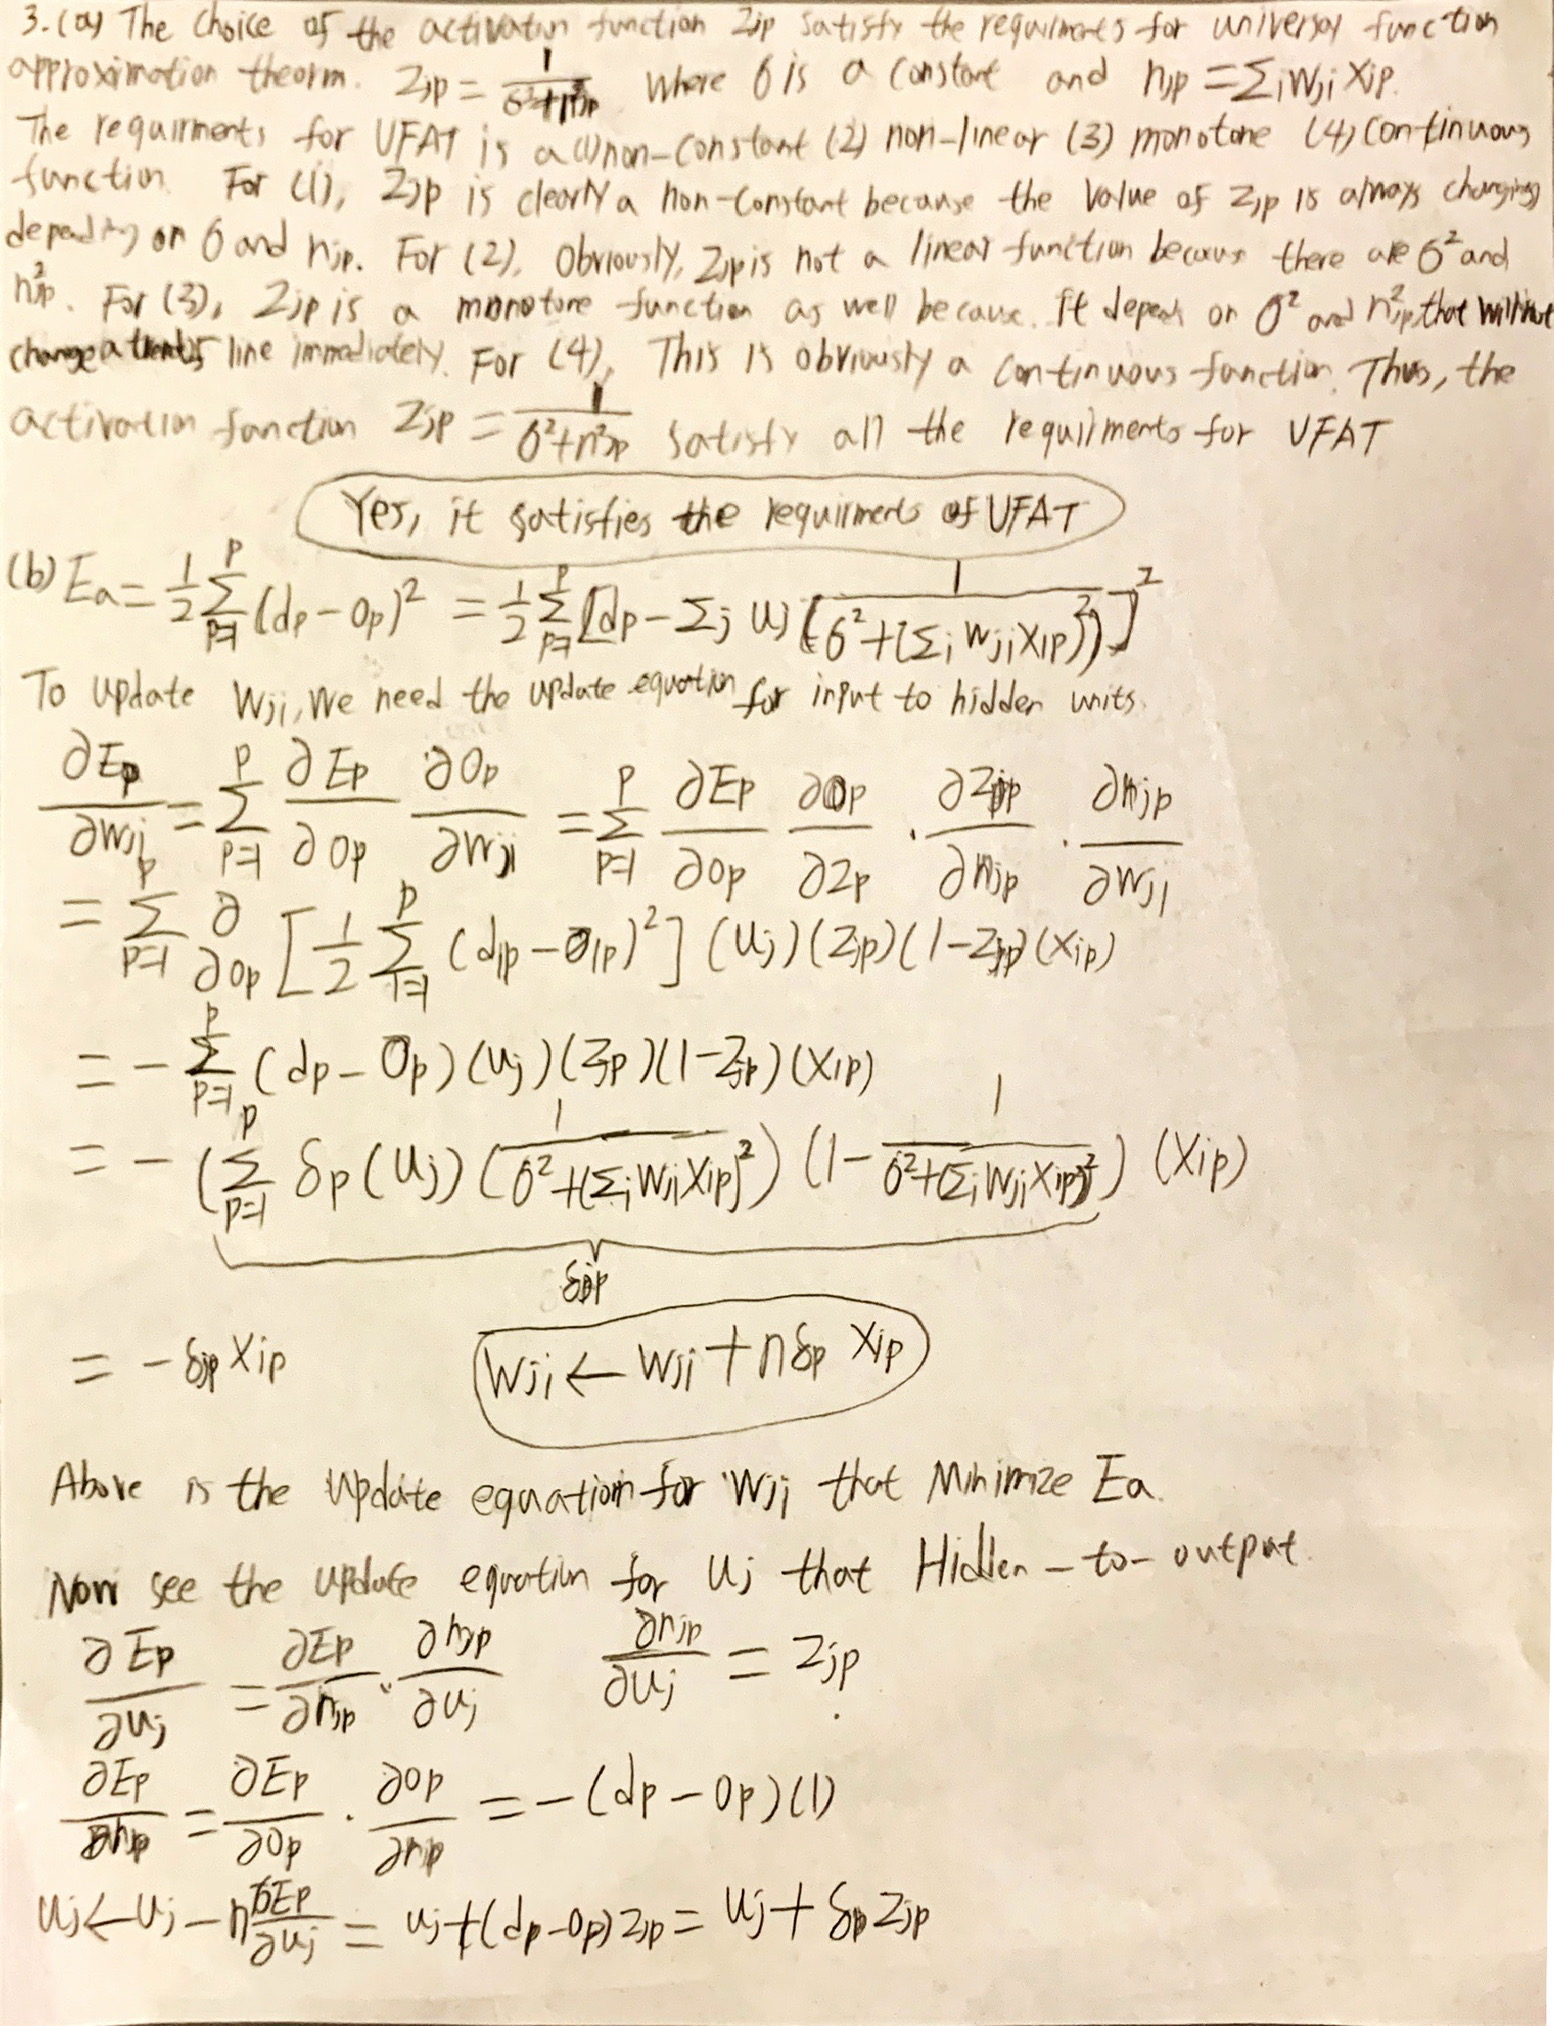 3.(a) The choice of the activation function Zjp satisfy the requirments for universal function
approximation theorm. Zjp = 1/(σ²+n²jp) where σ is a constant and njp = Σi Wji Xip.
The requirments for UFAT is a (1) non-constant (2) non-linear (3) monotone (4) continuous
function. For (1), Zjp is clearly a non-constant because the value of Zjp is always changing
depending on σ and njp. For (2), Obviously, Zjp is not a linear function because there are σ² and
n²jp. For (3), Zjp is a monotone function as well because. It depends on σ² and n²jp, that will not
change line immediately. For (4), This is obviously a continuous function. Thus, the
activation function Zjp = 1/(σ²+n²jp) satisfy all the requirments for UFAT
Yes, it satisfies the requirments of UFAT
(b) Ea = 1/2 Σ_{p=1}^{P} (dp - Op)² = 1/2 Σ_{p=1}^{P} [dp - Σj Uj (1/(σ²+(Σi Wji Xip)²))]²
To update Wji, We need the update equation for input to hidden units.
∂Ep/∂Wji = Σ_{p=1}^{P} ∂Ep/∂Op ∂Op/∂Wji = Σ_{p=1}^{P} ∂Ep/∂Op ∂Op/∂Zp · ∂Zjp/∂njp · ∂njp/∂Wji
= Σ_{p=1}^{P} ∂/∂Op [1/2 Σ_{l=1}^{P} (dlp - Olp)²] (Uj)(Zjp)(1-Zjp)(Xip)
= - Σ_{p=1}^{P} (dp - Op)(Uj)(Zjp)(1-Zjp)(Xip)
= - (Σ_{p=1}^{P} δp (Uj) (1/(σ²+(Σi Wji Xip)²)) (1 - 1/(σ²+(Σi Wji Xip)²)) (Xip)
δjp
= - δjp Xip
Wji ← Wji + nδp Xip
Above is the update equation for Wji that Minimize Ea.
Now see the update equation for Uj that Hidden-to-output.
∂Ep/∂Uj = ∂Ep/∂njp · ∂njp/∂Uj ∂njp/∂Uj = Zjp.
∂Ep/∂njp = ∂Ep/∂Op · ∂Op/∂njp = -(dp - Op)(1)
Uj ← Uj - n ∂Ep/∂Uj = Uj + (dp - Op) Zjp = Uj + δp Zjp